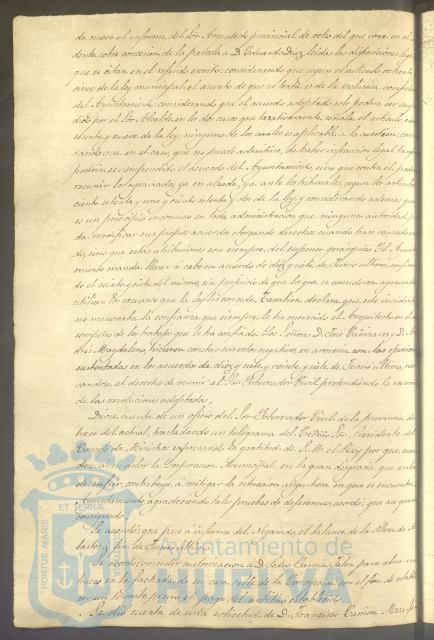 de nuevo el informe del Sor Arquitecto provincial de ocho del que corre en el
dente sobre concesion de la parcela a D. Eduardo Diaz, leidas las disposiciones lega
que se citan en el referido escrito: considerando que segun el articulo ochenta
cinco de la ley municipal el asunto de que se trata es de la esclusiva competen
del Ayuntamiento: considerando que el acuerdo adoptado solo podria ser suspen
dido por el Sor Alcalde en los dos casos que taxativamente señala el articulo cien
sesenta y nueve de la ley, ninguno de los cuales es aplicable a la cuestion: conside
rando que en el caso, que no puede admitirse, de haber infraccion legal tampoco
podria ser suspendido el acuerdo del Ayuntamiento, sino que contra el podran
recurrir los agraviados ya en alzada, ya ante los tribunales, segun los articulos
ciento setenta y uno y ciento setenta y dos de la ley y considerando ademas que
es un principio inconcuso en toda administracion que ninguna autoridad pue
da modificar sus propios acuerdos otorgando derechos cuando han causado esta
do, sino que estas atribuciones son siempre del superior gerarquico: El Ayunta
miento manda llevar a cabo su acuerdo de diez y siete de Junio ultimo, confirma
do el veinte y siete del mismo, sin perjuicio de que los que se consideren agraviados
utilicen los recursos que la ley les concede. Tambien declara que este incidente
no menoscaba la confianza que siempre le ha merecido el Arquitecto en el de
sempeño de los trabajos que le ha confiado. Los Señores D. José Cañizares y D. An
drés Magdalena hicieron constar sus votos negativos en armonia con las opiniones
sustentadas en los acuerdos de diez y siete y veinte y siete de Junio ultimo, reser
vandose el derecho de recurrir al Sor Gobernador Civil pretendiendo la revoca
de las resoluciones adoptadas.
Diose cuenta de un oficio del Sor Gobernador Civil de la provincia de
trece del actual, trasladando un telegrama del Excmo Sor Presidente del
Consejo de Ministros espresando la gratitud de S. M. el Rey por que asocian
dose a su dolor la Corporacion Municipal, en la gran desgracia que acaba
de sufrir contribuye a mitigar la situacion angustiosa en que se encuentra.
Ayuntamiento, agradeciendo tales pruebas de deferencia, acordó que asi quede
consignado.
Se acordó que pase a informe del Negociado, el balance de la Plaza de A
bastos, y fin de Junio ultimo.
Se acordó conceder autorizacion a D. Pedro Garcia Talon para abrir un
hueco en la fachada de su casa calle de la Concepcion con el fin de estable
cer un previo el pago del arbitrio establecido.
Se dió cuenta de una solicitud de D. Francisco Ramon Mars
Ayuntamiento de
PORTUS MARIS
ET TERRA